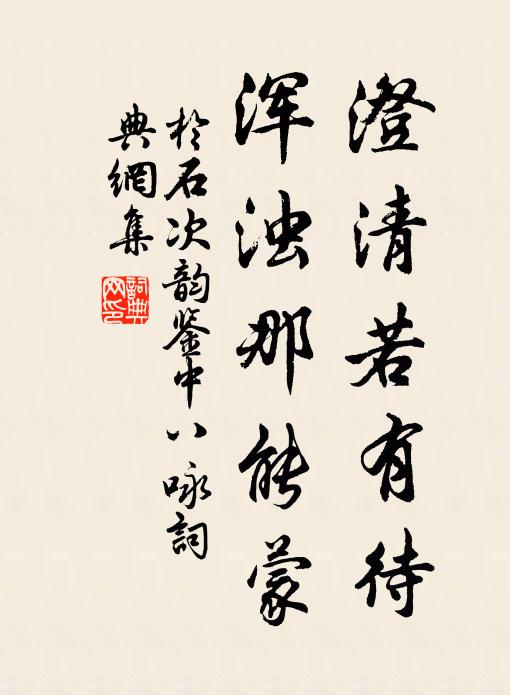 澄清若有待
浑浊那能蒙
於石次韵鉴中八咏词
典網集
詞典
网印